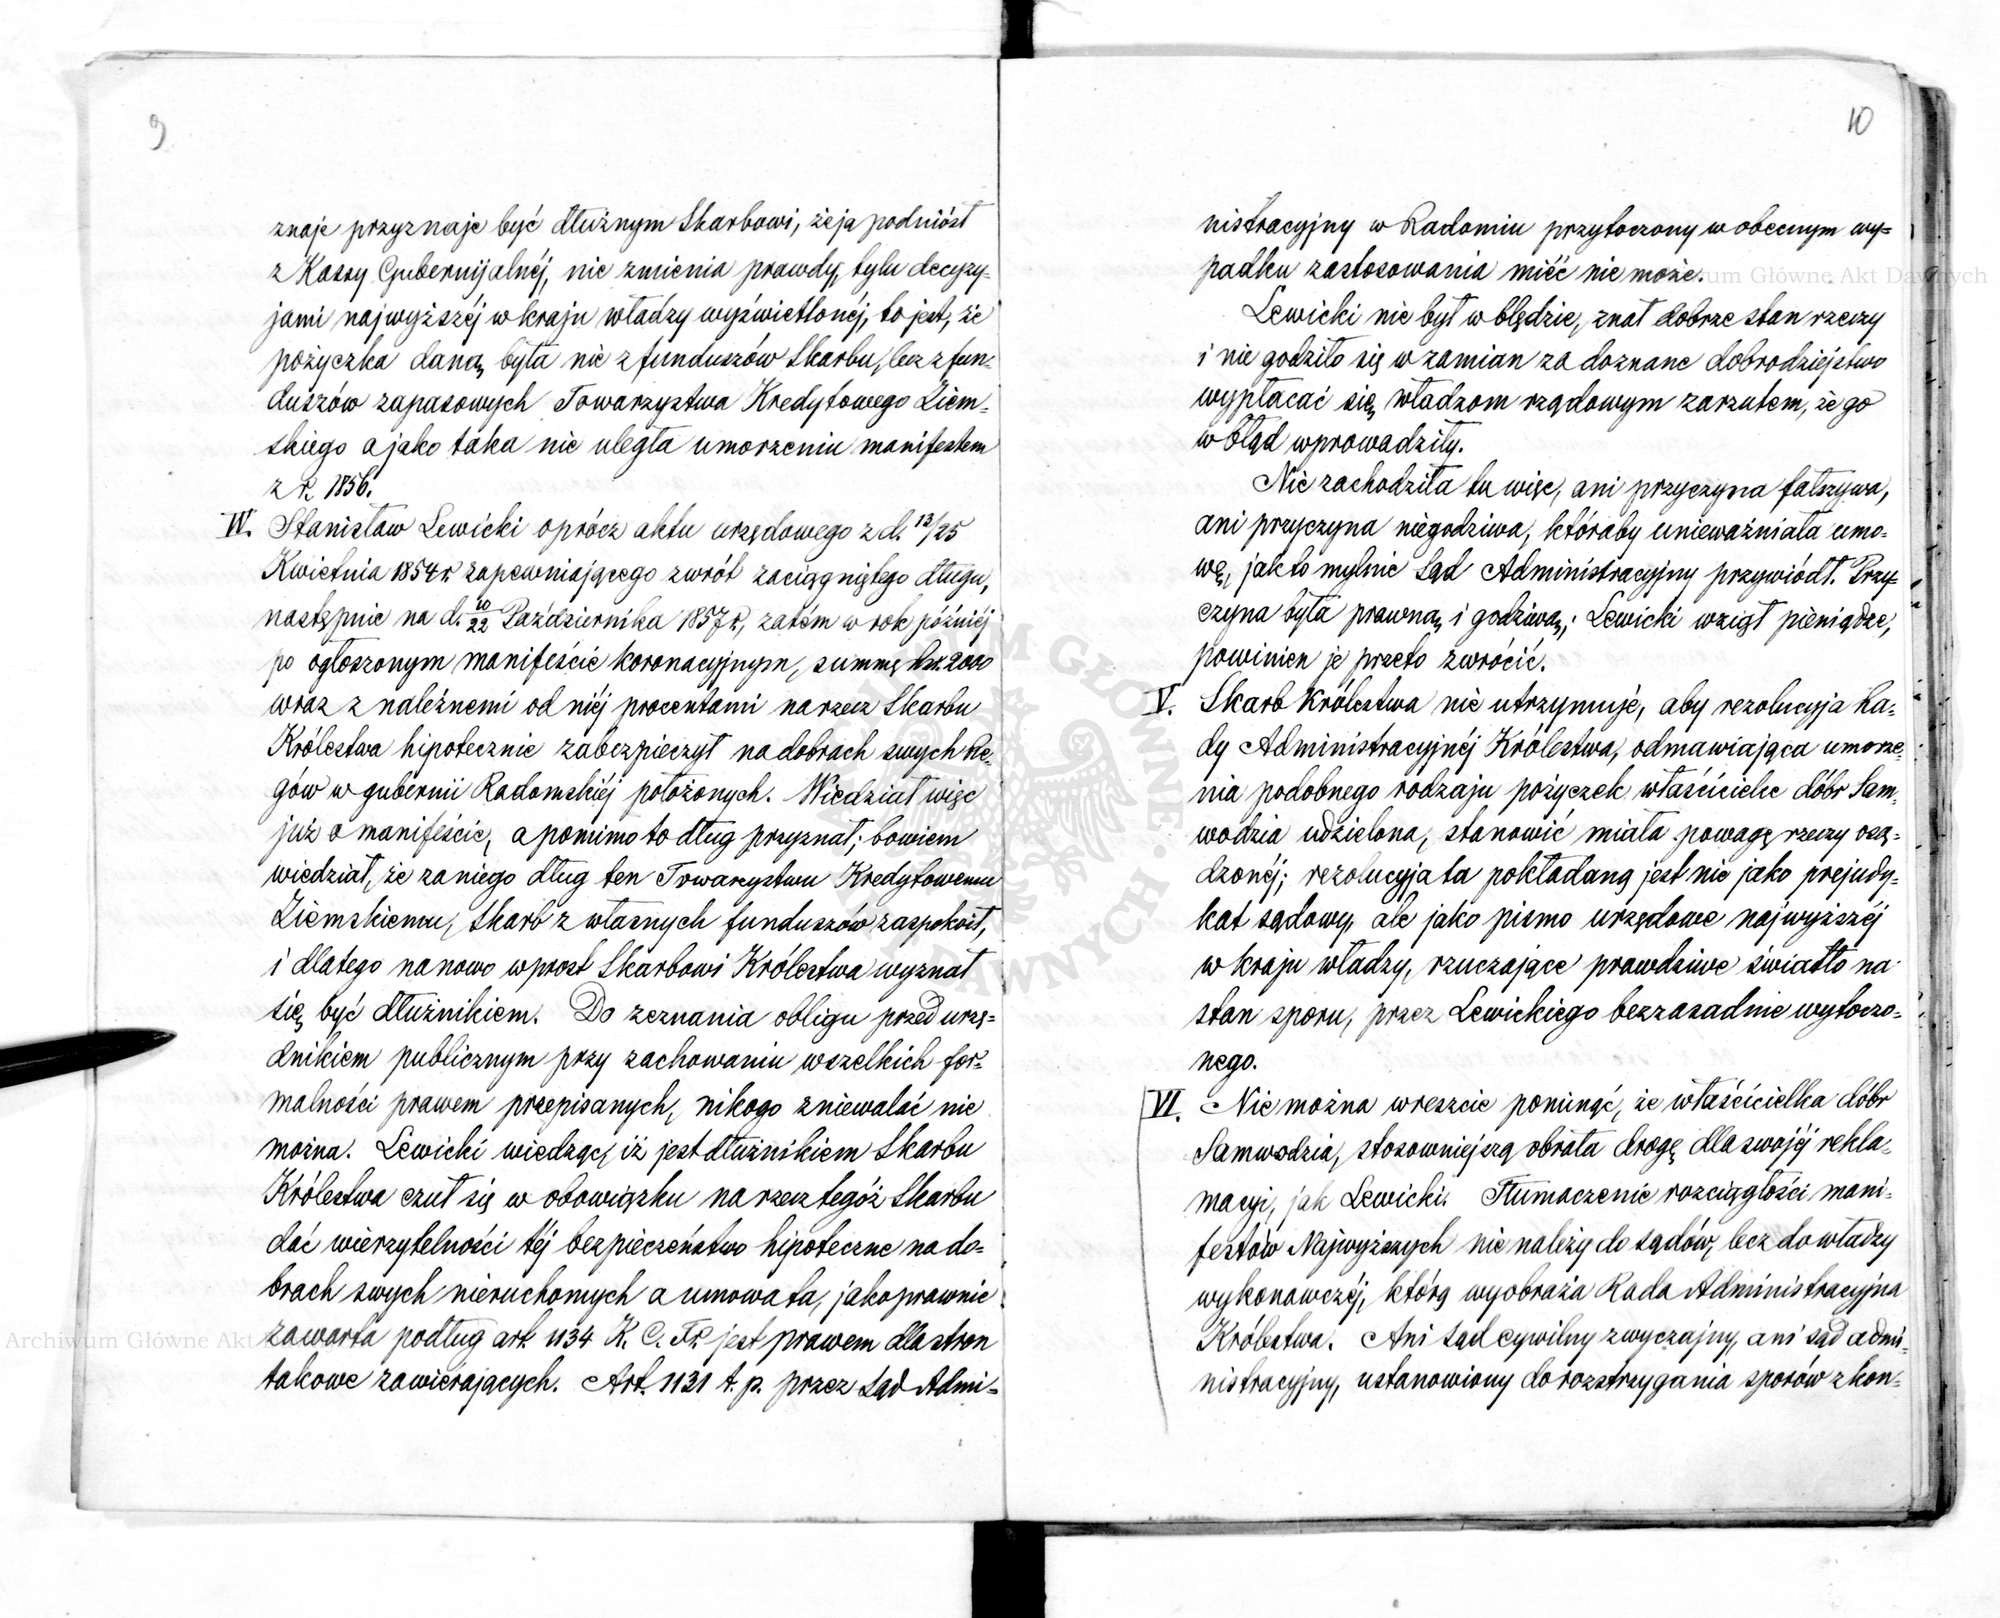 9
znaje przyznaje być dłużnym Skarbowi, że ją podniósł
z Kassy Gubernijalnéj, nie zmienia prawdy, tylu decyzy-
jami najwyższéj w kraju władzy wyświetlonéj, to jest, że
pożyczka daną była nie z funduszów Skarbu, lecz z fun-
duszów zapasowych Towarzystwa Kredytowego Ziem-
skiego a jako taka nie uległa umorzeniu manifestem
z r. 1856.
IV. Stanisław Lewicki oprócz aktu urzędowego z d. 13/25
Kwietnia 1854 r. zapewniającego zwrót zaciągniętego długu,
następnie na d. 10/22 Października 1857 r., zatém w rok później
po ogłoszonym manifeście koronacyjnym, summę Rsr. 2000
wraz z należnemi od niéj procentami na rzecz Skarbu
Królestwa hipotecznie zabezpieczył na dobrach swych Re-
gów w gubernii Radomskiéj położonych. Wiedział więc
już o manifeście, a pomimo to dług przyznał; bowiem
wiedział, że za niego dług ten Towarzystwu Kredytowemu
Ziemskiemu, Skarb z własnych funduszów zaspokoił,
i dlatego na nowo wprost Skarbowi Królestwa wyznał
się być dłużnikiem. Do zeznania obligu przed urzę-
dnikiem publicznym przy zachowaniu wszelkich for-
malności prawem przepisanych, nikogo zniewalać nie
można. Lewicki wiedząc, iż jest dłużnikiem Skarbu
Królestwa czuł się w obowiązku na rzecz tegóż Skarbu
dać wierzytelności téj bezpieczeństwo hipoteczne na do-
brach swych nieruchomych a umowa ta, jako prawnie
zawarta podług art. 1134 K. C. Fr. jest prawem dla stron
takowe zawierających. Art. 1131 t. p. przez Sąd Admi-
10
nistracyjny w Radomiu przytoczony w obecnym wy-
padku zastosowania mieć nie może.
Lewicki nie był w błędzie, znał dobrze stan rzeczy
i nie godziło się w zamian za doznane dobrodziejstwo
wypłacać się władzom rządowym zarzutem, że go
w błąd wprowadziły.
Nie zachodziła tu więc, ani przyczyna fałszywa,
ani przyczyna niegodziwa, któraby unieważniała umo-
wę, jak to mylnie Sąd Administracyjny przywiódł. Przy-
czyna była prawną i godziwą; Lewicki wziął pieniądze,
powinien je przeto zwrócić.
V. Skarb Królestwa nie utrzymuje, aby rezolucyja Ra-
dy Administracyjnéj Królestwa, odmawiająca umorze-
nia podobnego rodzaju pożyczek właścicielce dóbr Sam-
wodzia udzielona, stanowić miała powagę rzeczy osą-
dzonéj; rezolucyja ta pokładaną jest nie jako prejudy-
kat sądowy, ale jako pismo urzędowe najwyższéj
w kraju władzy, rzuczające prawdziwe światło na
stan sporu, przez Lewickiego bezzasadnie wytoczo-
nego.
VI. Nie można wreszcie pominąć, że właścicielka dóbr
Samwodzia, stosowniejszą obrała drogę dla swojéj rekla-
macyi, jak Lewicki. Tłumaczenie rozciągłości mani-
festów Najwyższych nie należy do sądów, lecz do władzy
wykonawczéj, którą wyobraża Rada Administracyjna
Królestwa. Ani sąd cywilny zwyczajny, ani sąd admi-
nistracyjny, ustanowiony do rozstrzygania sporów z kon-
Archiwum Główne Akt Dawnych